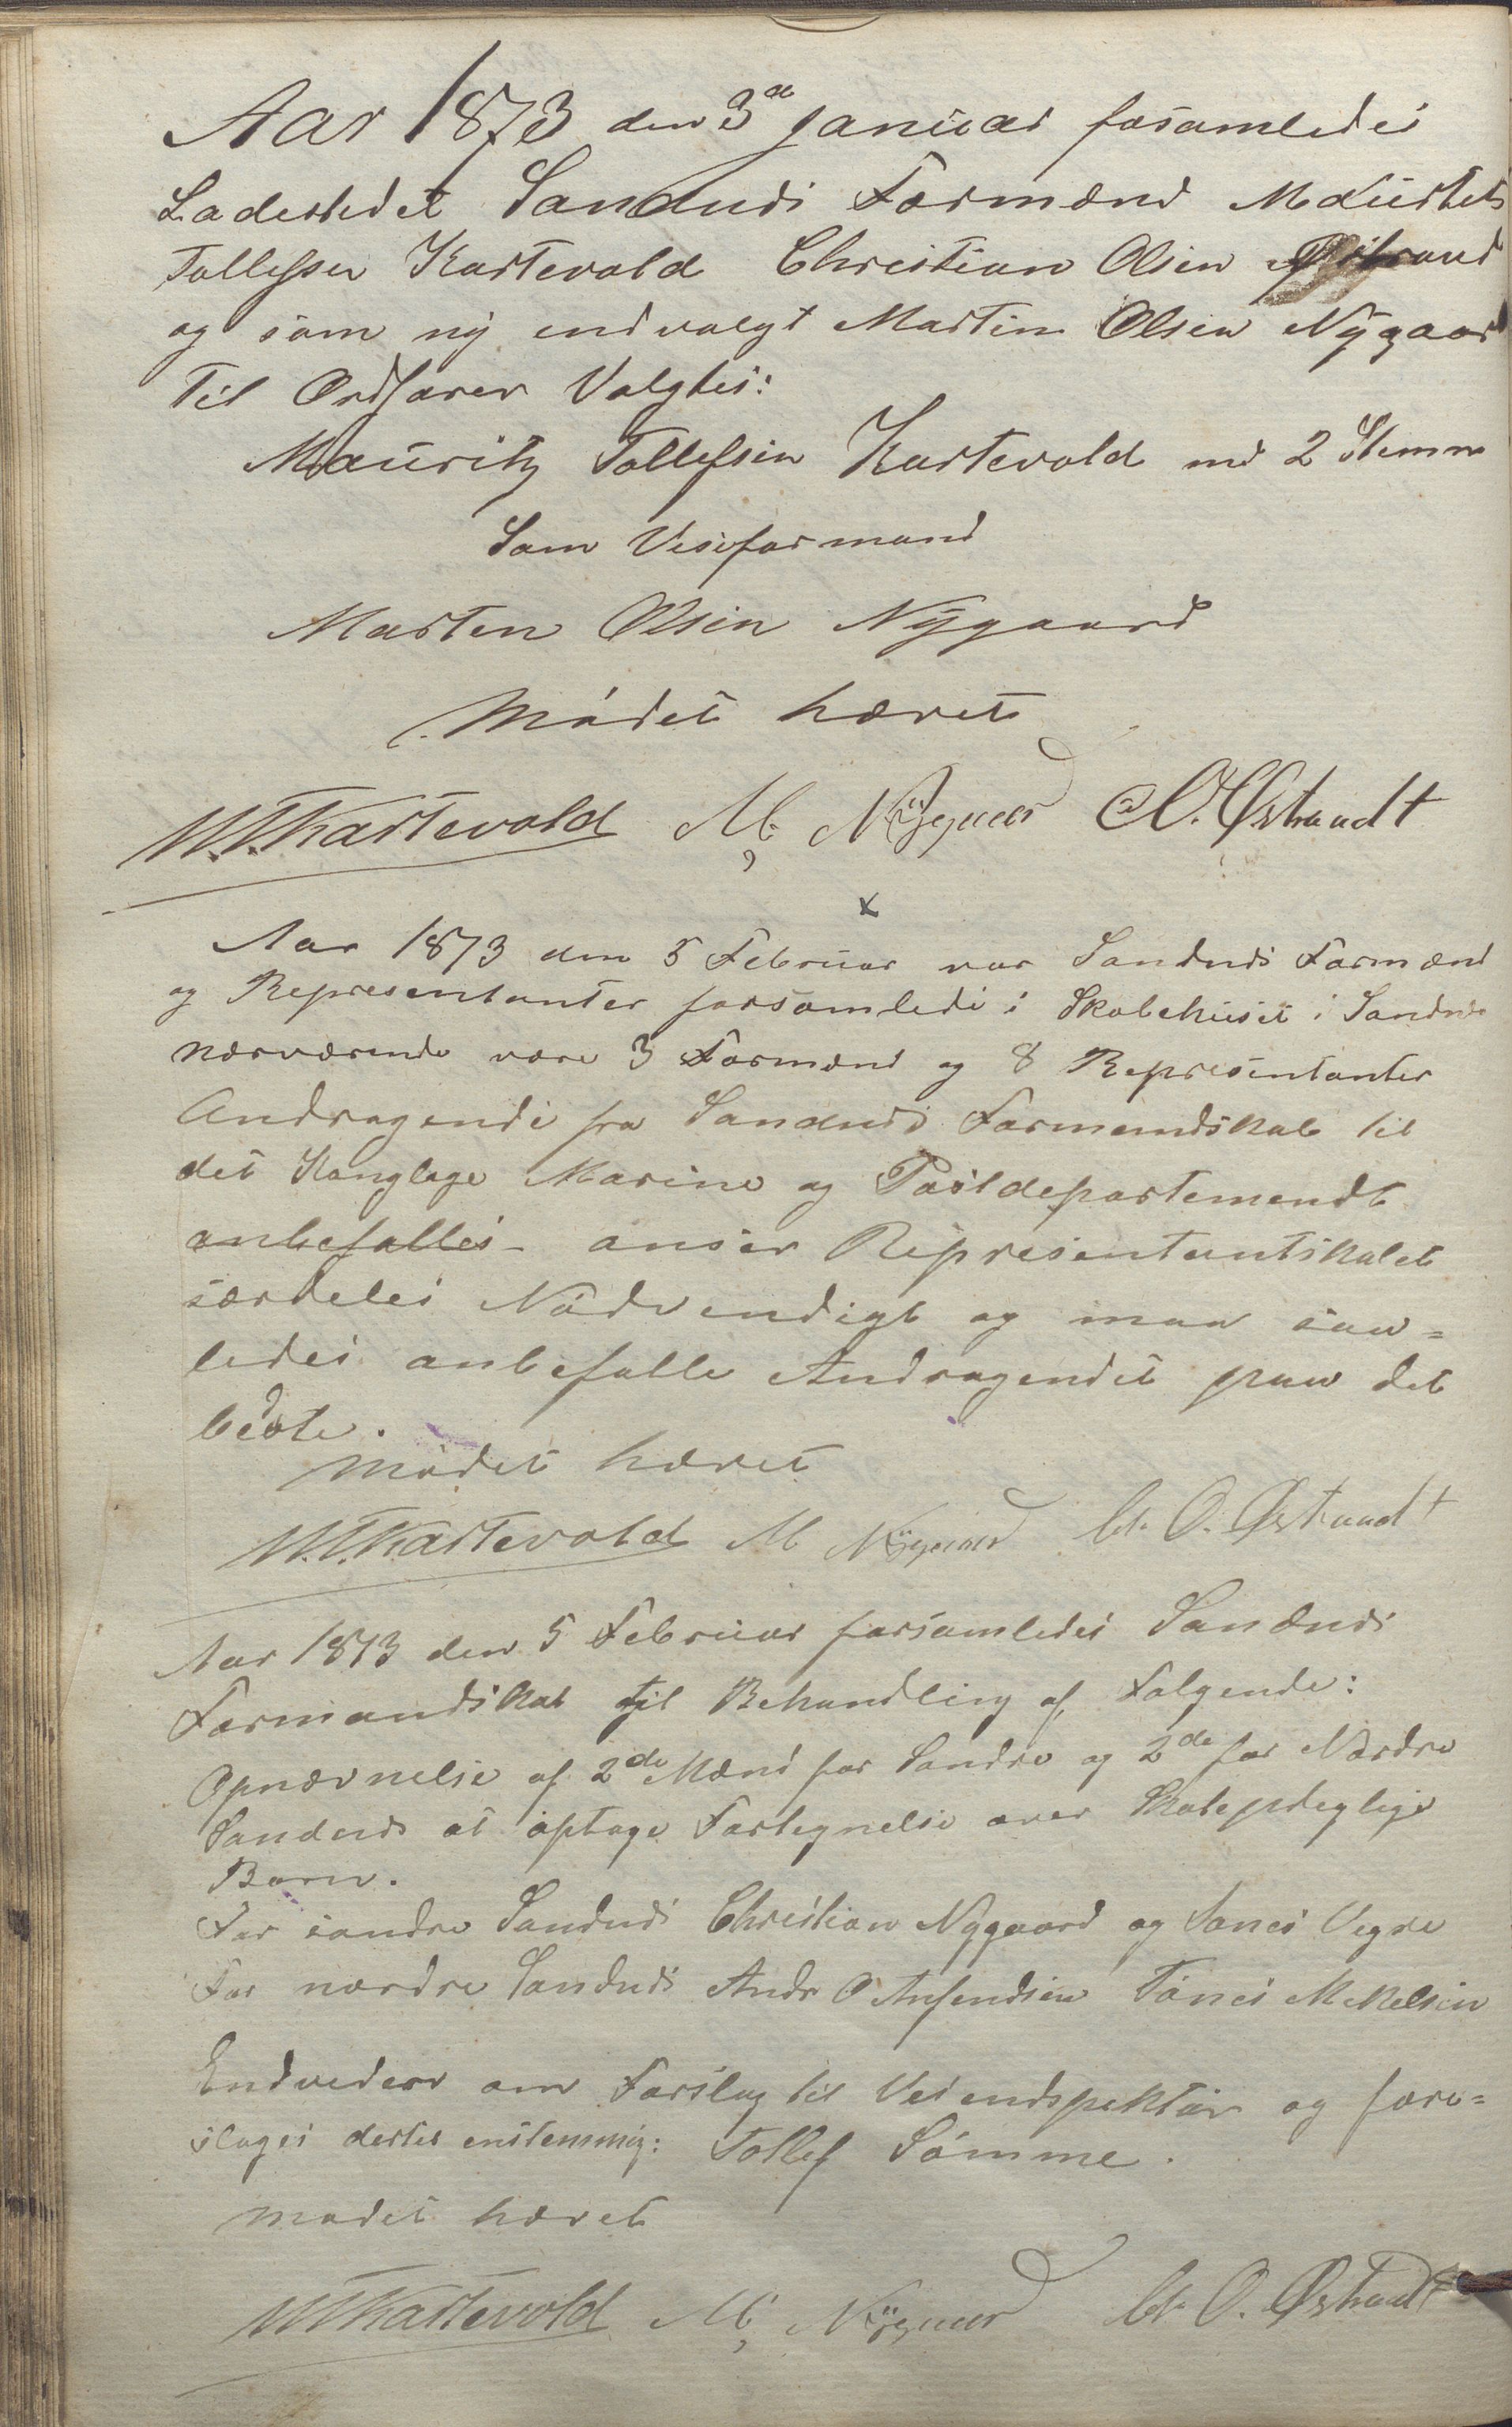 Aar 1873 den 3de Januar forsamledes
Ladestedet Sandnes Formænd Mauritz
Tollefsen Kartevold Christian Olsen Østraad
og som ny indvalgt Martin Olsen Nygaard
Til Ordfører Valgtes:
Mauritz Tollefsen Kartevold med 2 Stemm
Som Viseformand
Marten Olsen Nygaard
Mødet hævet
M.T. Kartevold M. Nÿgaard C. O. Østraadt
x
Aar 1873 den 5 Februar var Sandnes Formænd
og Representanter forsamlede i Skolehuset i Sandnes
nærværende vare 3 Formænd og 8 Representanter
Andragende fra Sandnes Formandskab til
det Konglege Marine og Postdepartemendt
anbefalles - anser Representantskabet
særdeles Nødvendigt og man saa=
ledes anbefalle Andragendet paa det
bedste.
Mødet hævet
M.T. Kartevold M Nÿgaard Ch. O. Østraadt
Aar 1873 den 5 Februar forsamledes Sandnes
Formandskab til Behandling af Følgende:
Opnævnelse af 2de Mænd for Søndre og 2de for Nordre
Sandnes at optage Fortegnelse over Skolepligtige
Børn.
For søndre Sandnes Christian Nygaard og Vegre
For nordre Sandnes Andr O Mikelsen
Endvedere om Forslag til Veiendspektør og fore=
slages dertil enstemmig: Tollef Sømme.
Mødet hævet
M.T. Kartevold M. Nÿgaard Ch. O. Østraadt